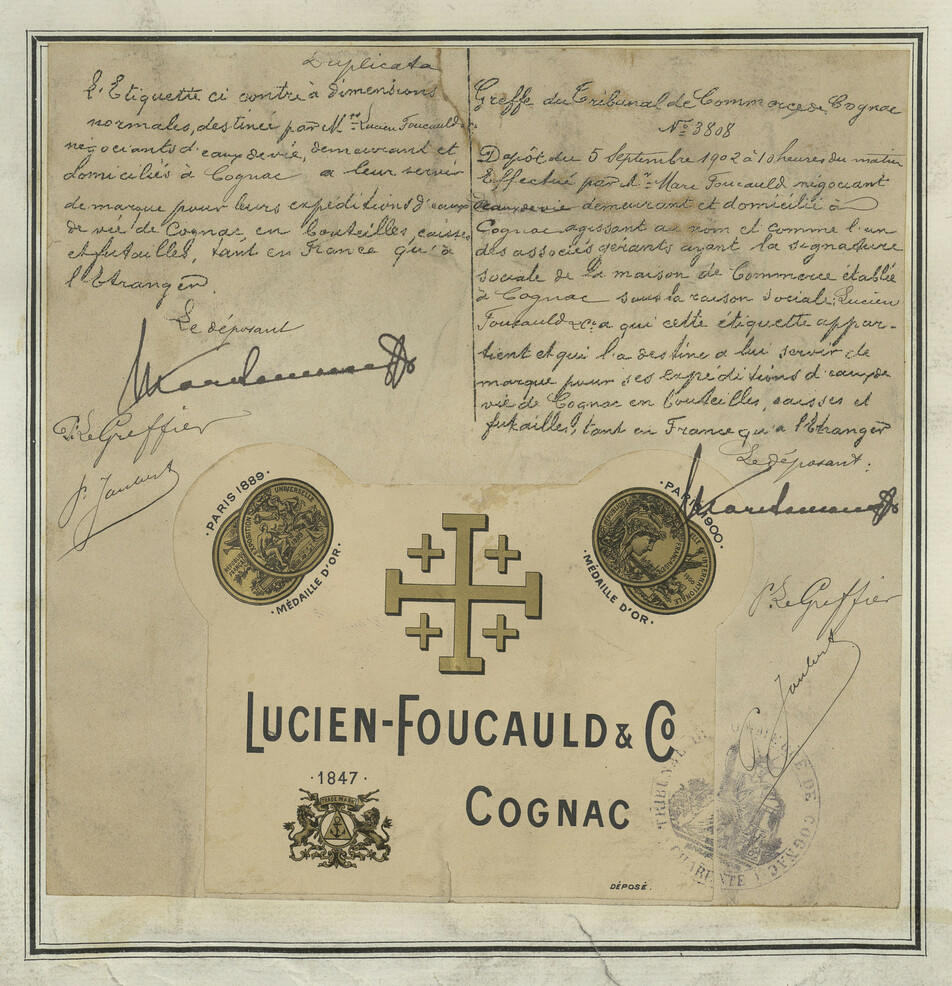 Duplicata
L'Etiquette ci contre à dimensions
normales, destinée par Mrs Lucien Foucauld &
négociants d'eaux de vie, demeurant et
domiciliés à Cognac a leur servir
de marque pour leurs expéditions d'eaux
de vie de Cognac en bouteilles, caisses
et futailles, tant en France qu'à
l'Etranger.
Le déposant
P. Le Greffier
P. Jaubert
Greffe du Tribunal de Commerce de Cognac
No 3808
Dépôt du 5 Septembre 1902 à 10 heures du matin
Effectué par Mr Marc Foucauld négociant
eaux de vie demeurant et domicilié à
Cognac agissant au nom et comme l'un
des associés gérants ayant la signature
sociale de la maison de Commerce établie
à Cognac sous la raison sociale: Lucien
Foucauld & Cie a qui cette étiquette appar-
tient et qui l'a destine a lui servir de
marque pour ses expéditions d'eaux de
vie de Cognac en bouteilles, caisses et
futailles, tant en France qu'a l'Etranger
Le déposant:
P. Le Greffier
P. Jaubert
·PARIS 1889·
EXPOSITION UNIVERSELLE
·MÉDAILLE D'OR·
·PARIS 1900·
·MÉDAILLE D'OR·
LUCIEN-FOUCAULD & Co
·1847·
TRADE MARK
COGNAC
DÉPOSÉ.
TRIBUNAL DE COMMERCE DE COGNAC
CHARENTE